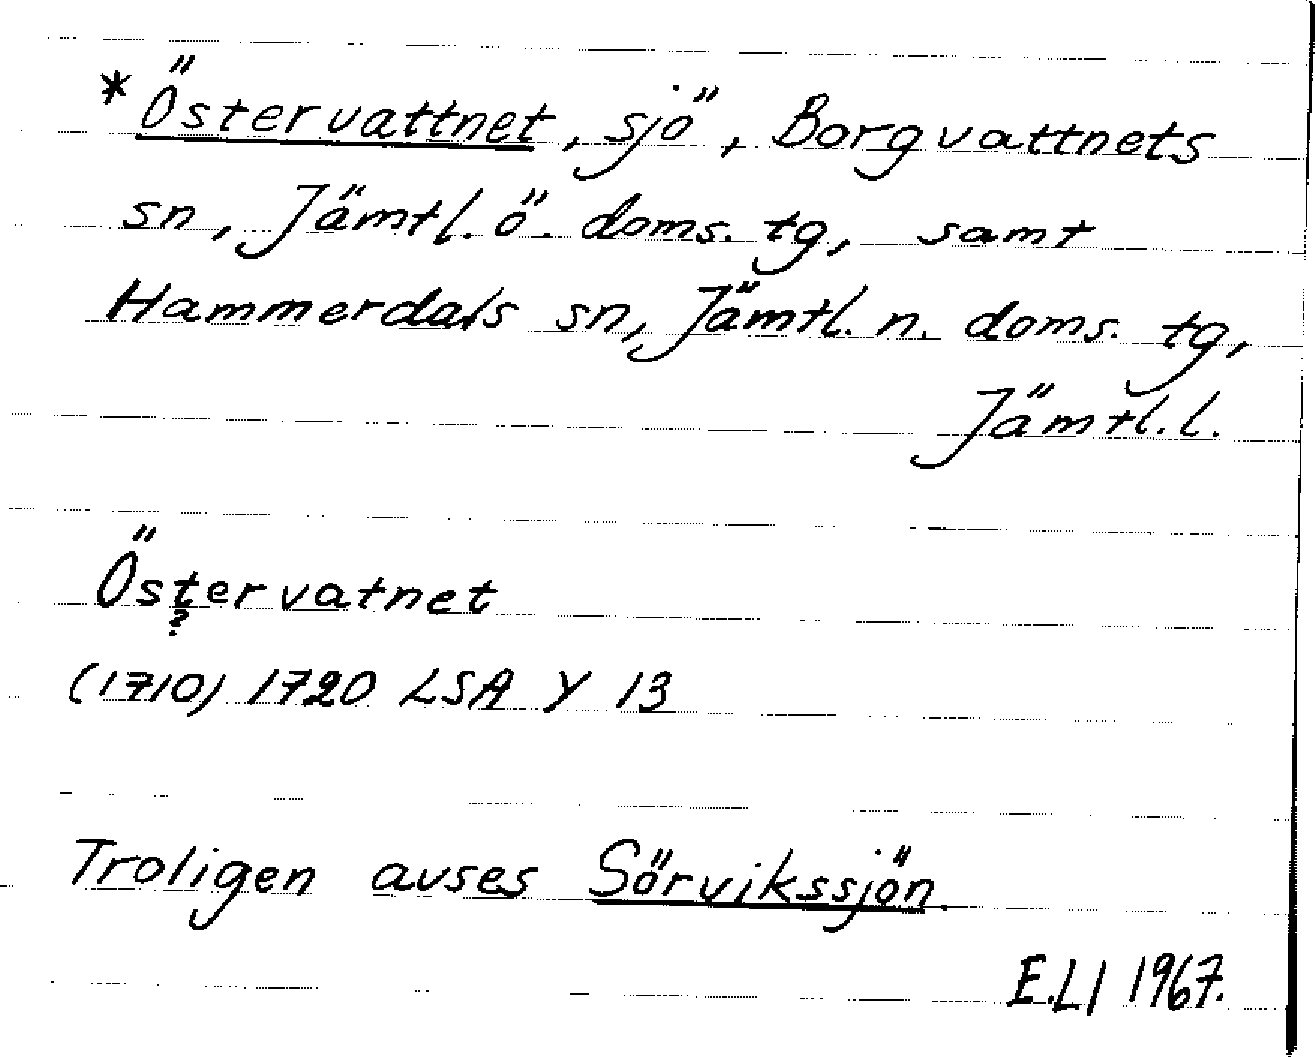 *Östervattnet, sjö, Borgvattnets
sn, Jämtl. ö. doms. tg, samt
Hammerdals sn, Jämtl. n. doms. tg,
Jämtl. l.
Östervatnet
?
(1710) 1720 LSA Y 13
Troligen avses Sörvikssjön.
E.Ll 1967.